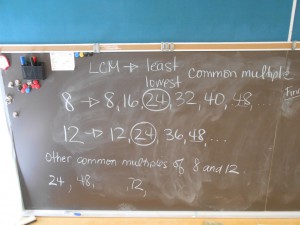 LCM → least
lowest common multiple
8 → 8, 16, 24, 32, 40, 48, ...
12 → 12, 24, 36, 48, ...
Other common multiples of 8 and 12
24, 48, , 72,